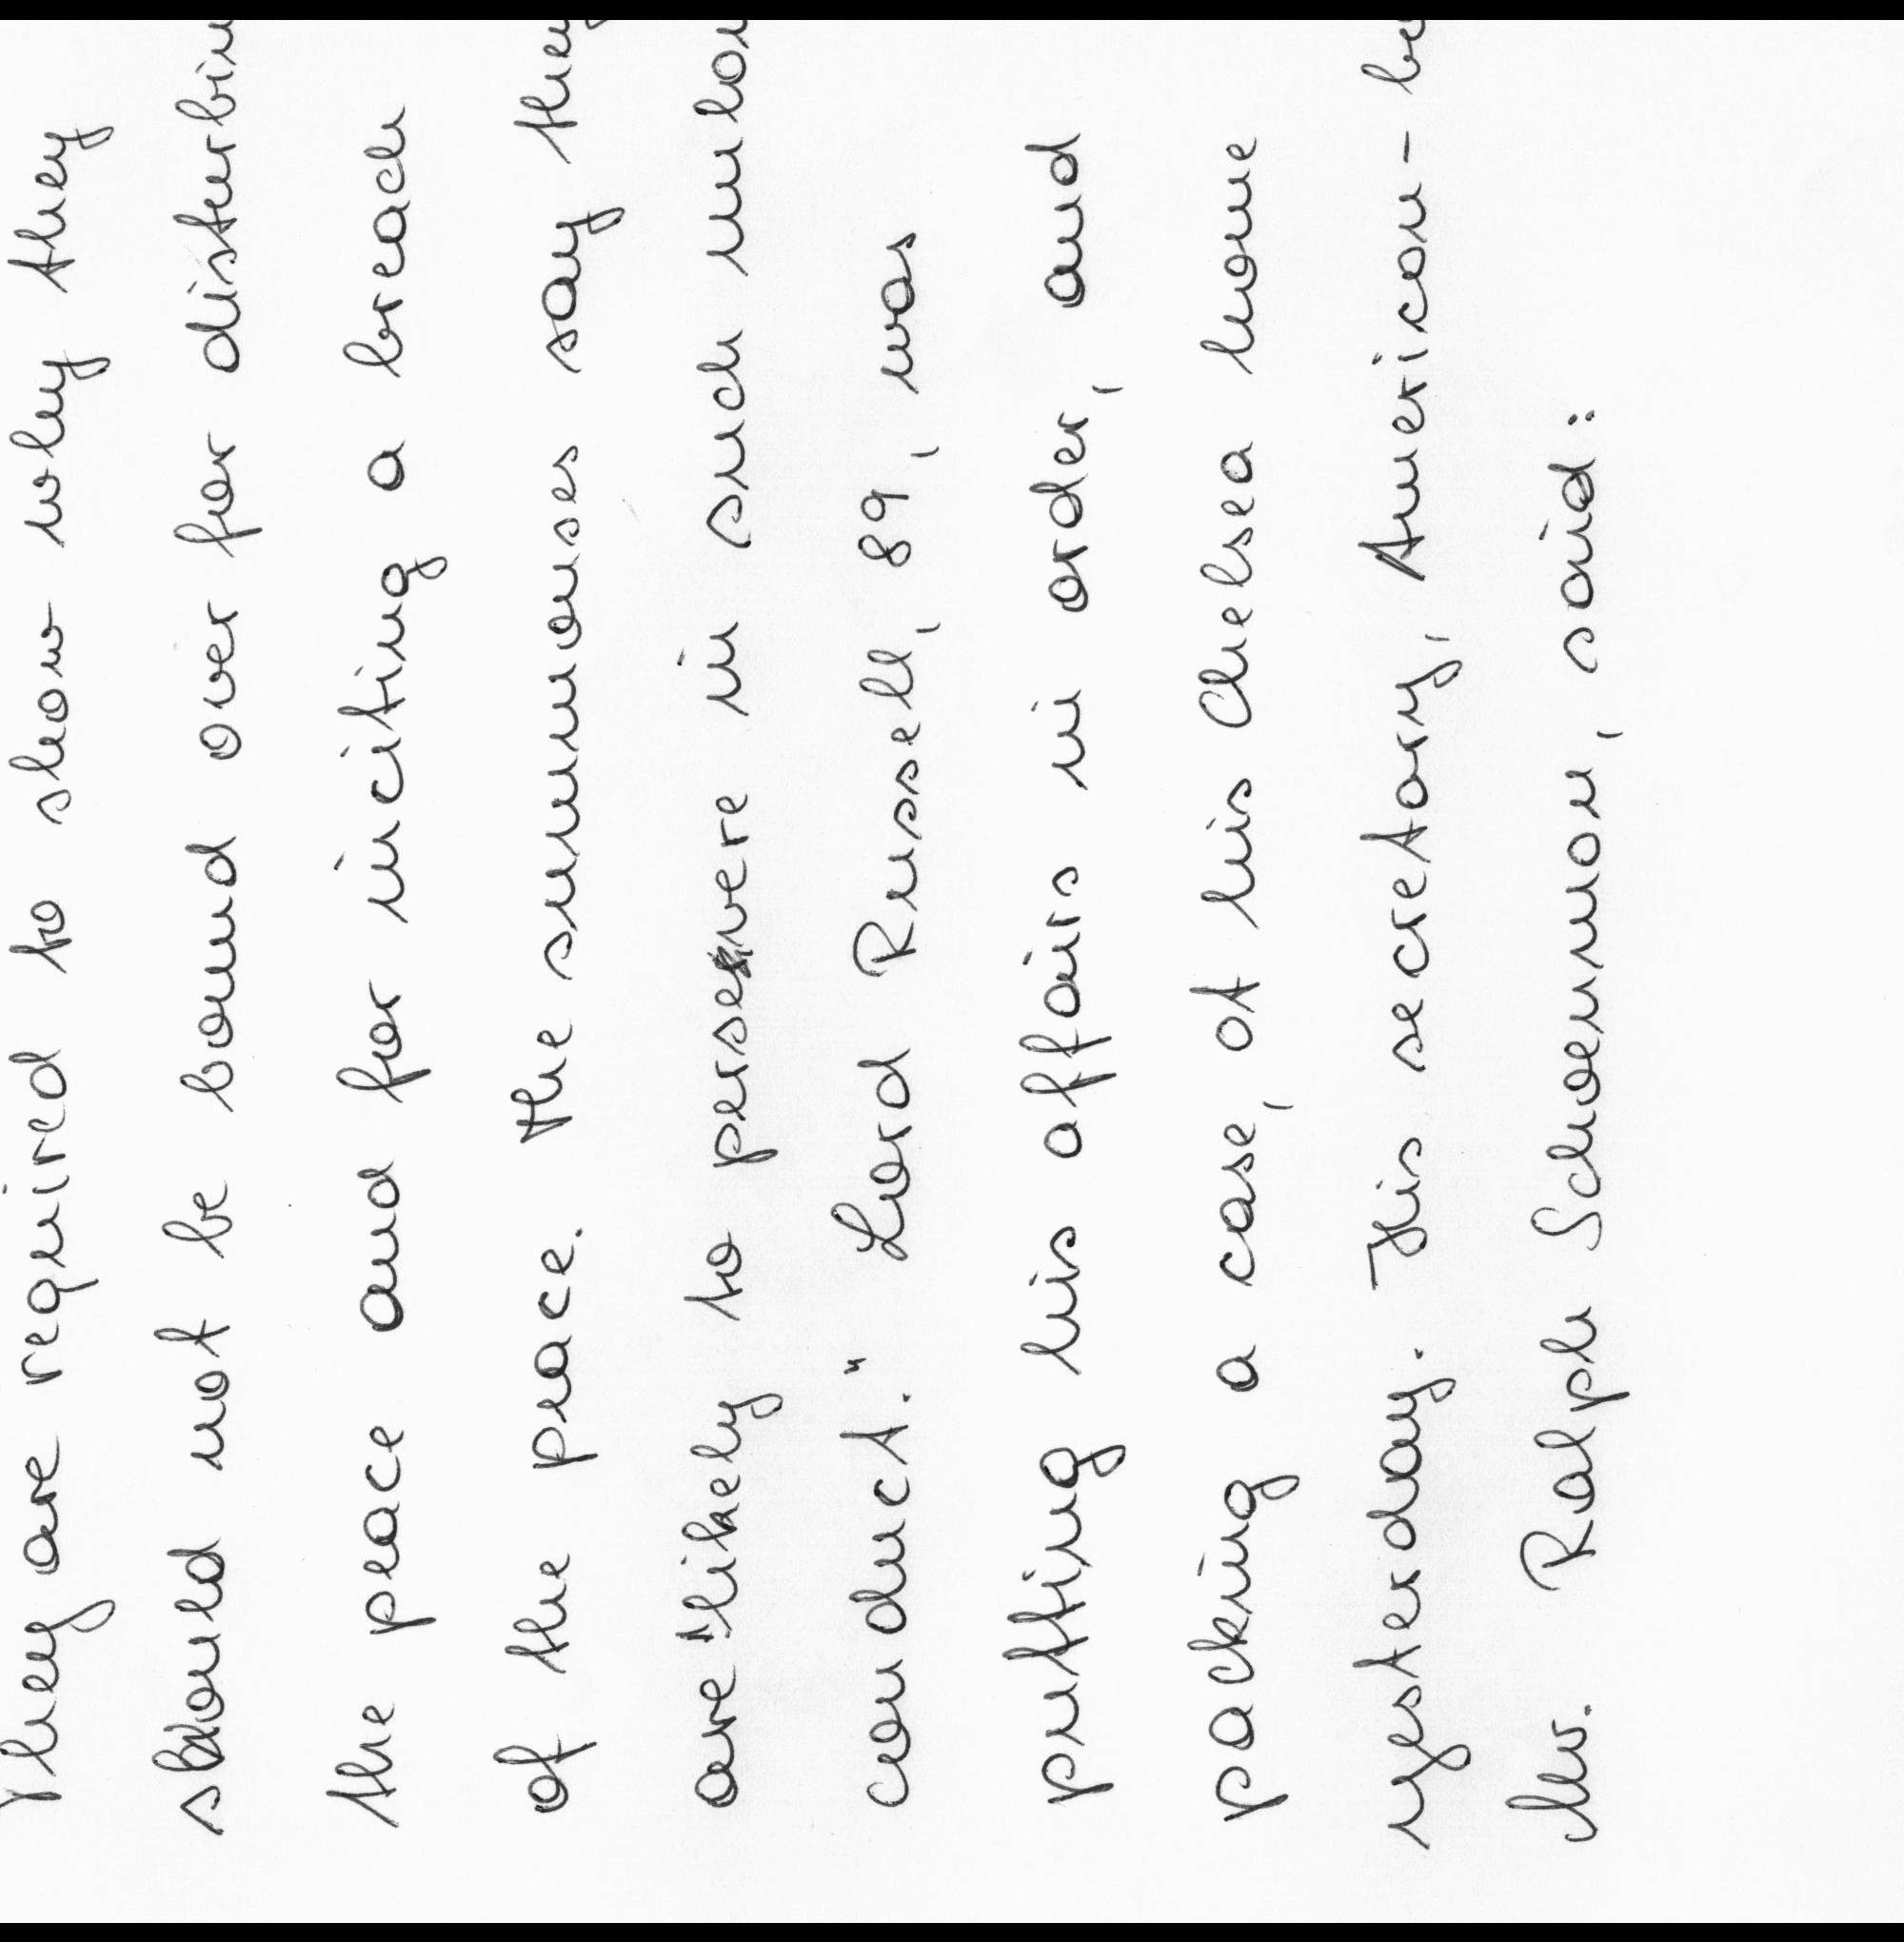 They are required to show why they
should not be bound over for disturbin
the peace and for inciting a breach
of the peace. The summonses say they
are "likely to persevere in such unlaw
conduct." Lord Russell, 89, was
putting his affairs in order, and
packing a case, at his Chelsea home
yesterday. His secretary, American-bo
Mr. Ralph Schoenman, said: